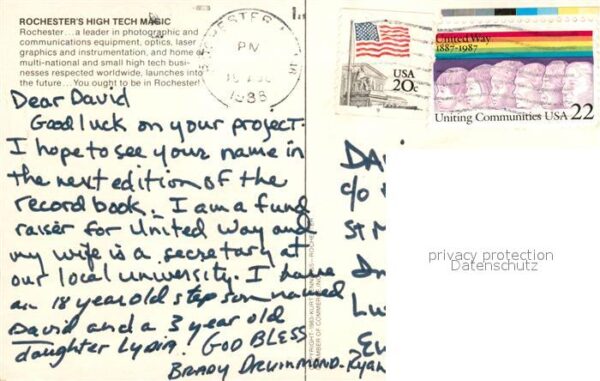 ROCHESTER'S HIGH TECH MAGIC
Rochester...a leader in photographic and
communications equipment, optics, laser
graphics and instrumentation, and home of
multi-national and small high tech busi-
nesses respected worldwide, launches into
the future... You ought to be in Rochester!
PM
1988
USA
20c
United Way
1887-1987
Uniting Communities USA 22
Dear David
Good luck on your project.
I hope to see your name in
the next edition of the
record book. I am a fund
raiser for United Way and
my wife is a secretary at
our local university. I have
an 18 year old step son named
David and a 3 year old
daughter Lydia. GOD BLESS
BRADY DRUMMOND-RYAN
DA
c/o
ST M
Lu
privacy protection
Datenschutz